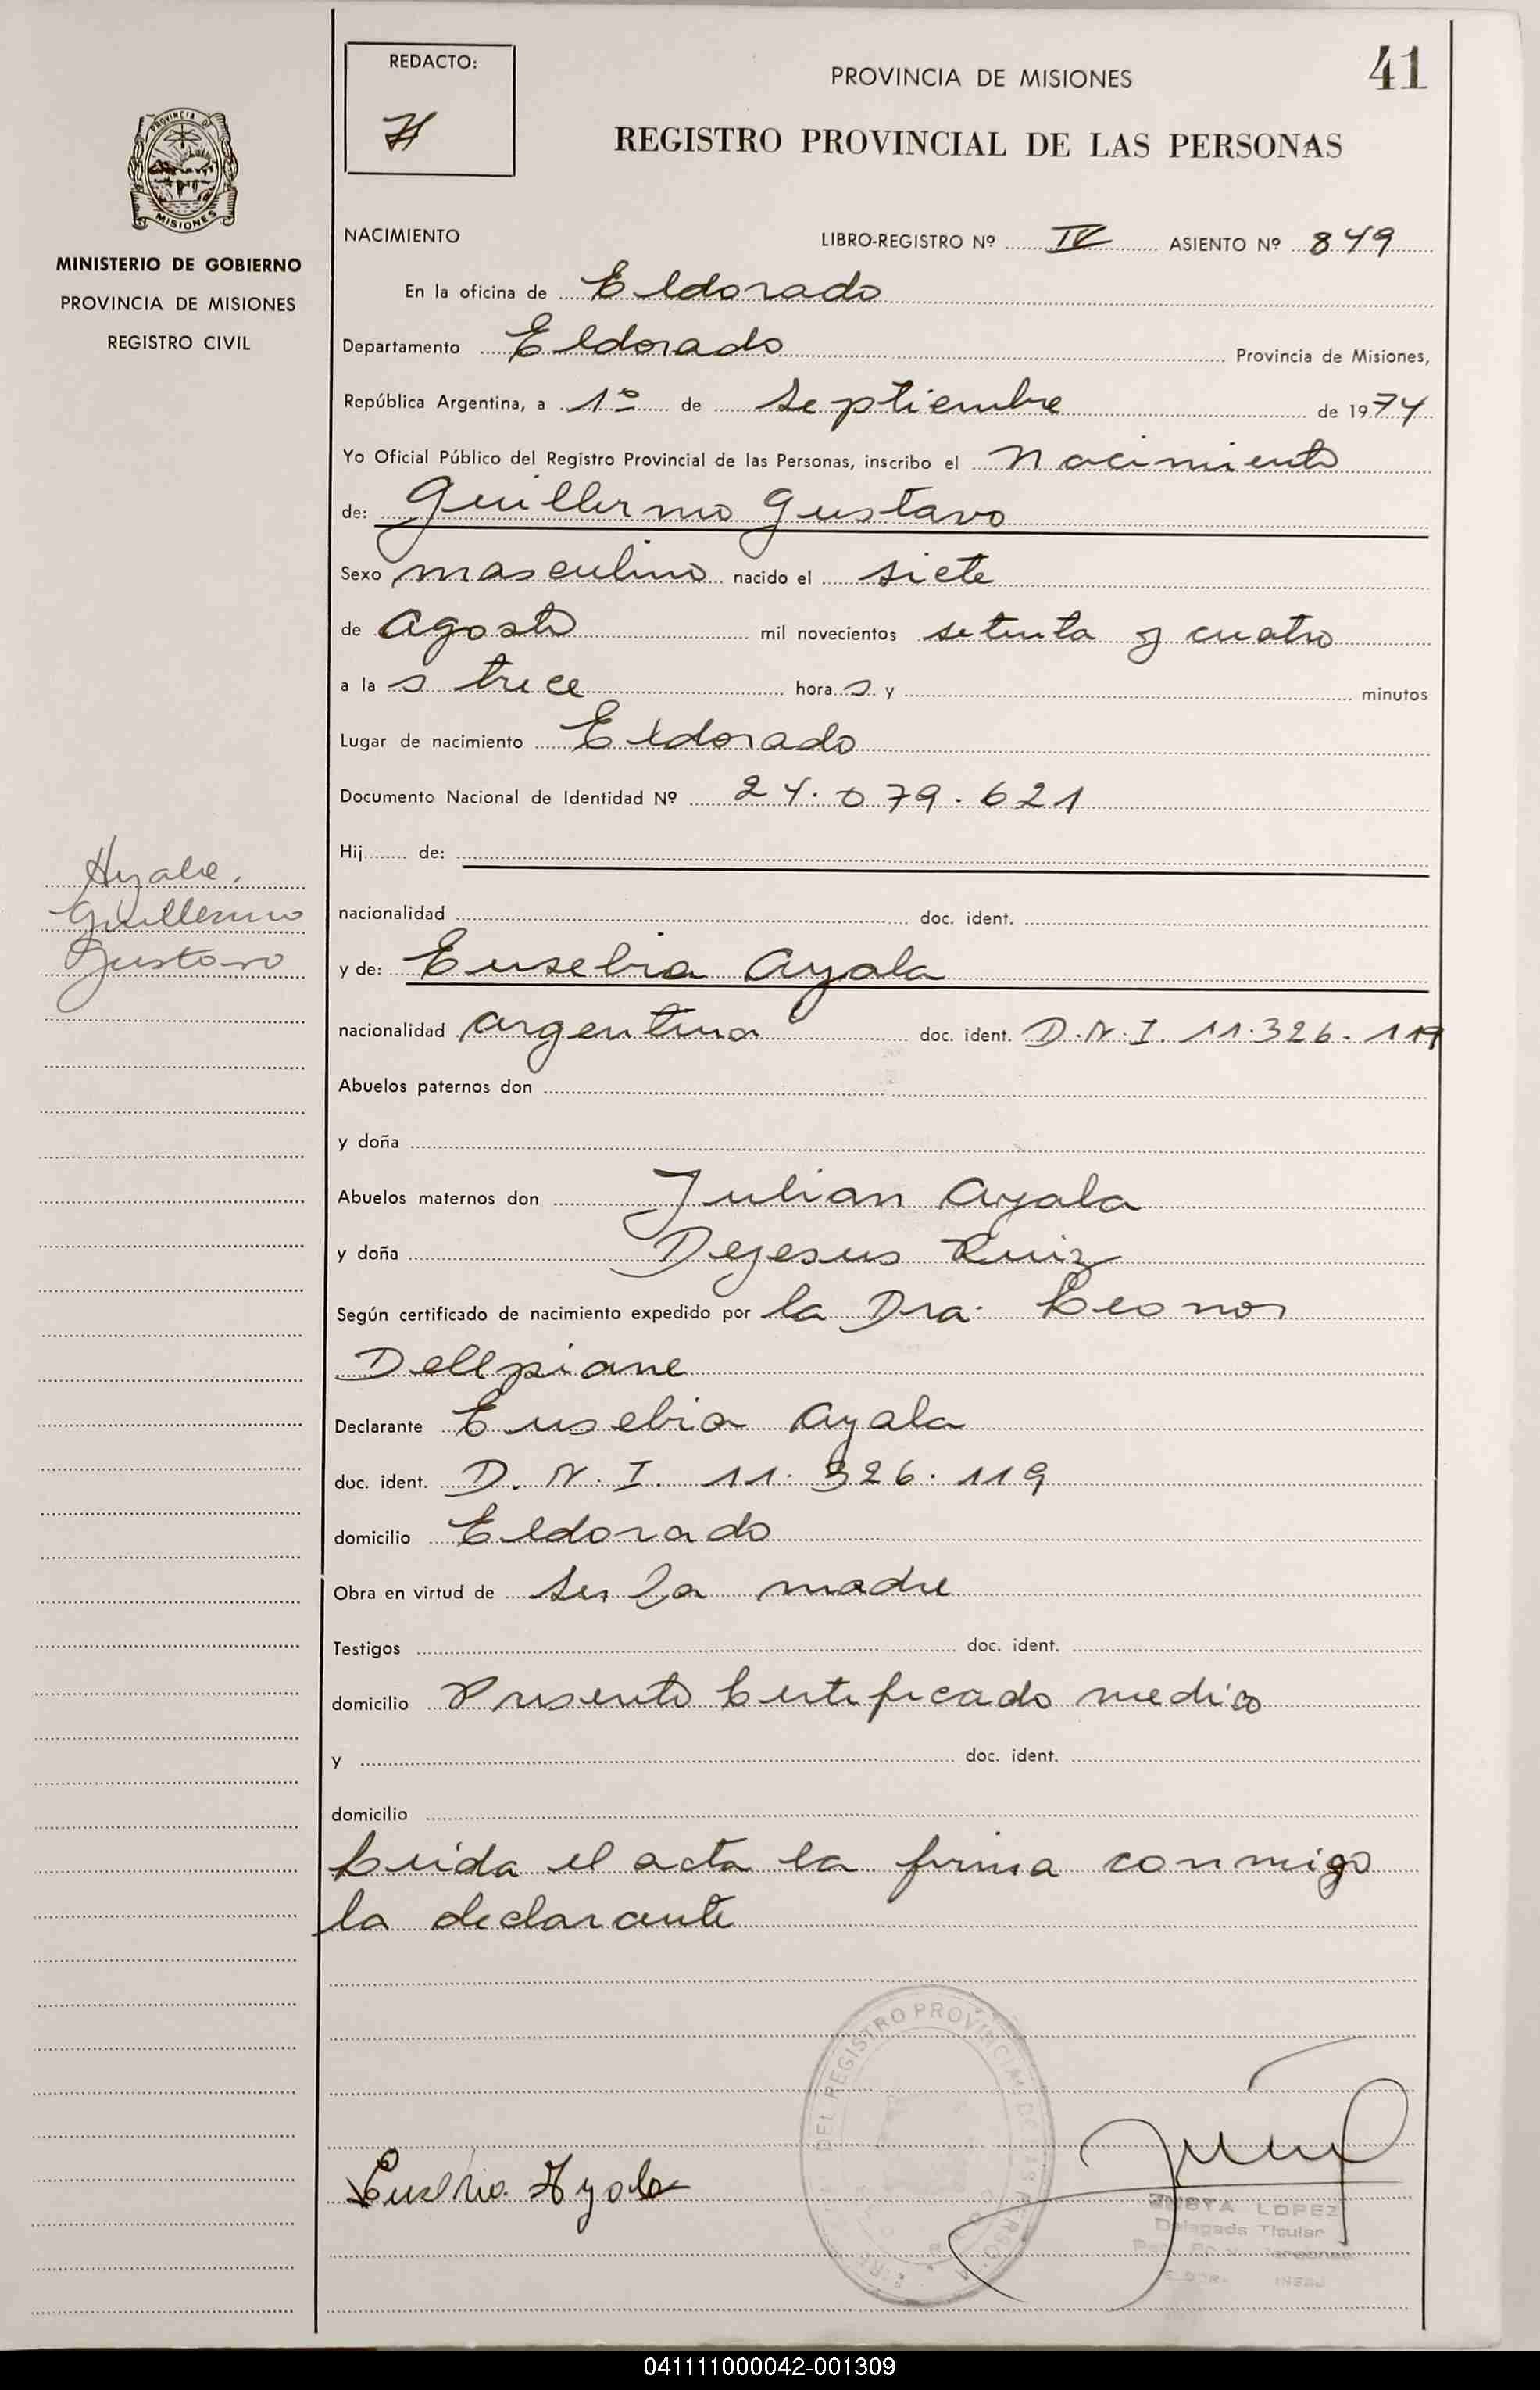 REDACTO:
H
PROVINCIA DE MISIONES
41
REGISTRO PROVINCIAL DE LAS PERSONAS
PROVINCIA DE
MISIONES
MINISTERIO DE GOBIERNO
PROVINCIA DE MISIONES
REGISTRO CIVIL
NACIMIENTO LIBRO-REGISTRO Nº IV ASIENTO Nº 849
En la oficina de Eldorado
Departamento Eldorado Provincia de Misiones,
República Argentina, a 1º de septiembre de 1974
Yo Oficial Público del Registro Provincial de las Personas, inscribo el Nacimiento
de: Guillermo Gustavo
Sexo masculino nacido el siete
de agosto mil novecientos setenta y cuatro
a la s trece hora s y minutos
Lugar de nacimiento Eldorado
Documento Nacional de Identidad Nº 24.079.621
Hij de:
Ayala.
Guillermo
Gustavo
nacionalidad doc. ident.
y de: Eusebia Ayala
nacionalidad argentina doc. ident. D.N.I. 11.326.119
Abuelos paternos don
y doña
Abuelos maternos don Julian Ayala
y doña Dejesus Ruiz
Según certificado de nacimiento expedido por la Dra. Leonor
Dellpiane
Declarante Eusebia Ayala
doc. ident. D.N.I. 11.326.119
domicilio Eldorado
Obra en virtud de ser la madre
Testigos doc. ident.
domicilio Presento Certificado medico
y doc. ident.
domicilio
Leida el acta la firma conmigo
la declarante
DEL REGISTRO PROVINCIAL DE LAS PERSONAS
Eusebia Ayala
JUSTA LOPEZ
Delegada Titular
041111000042-001309